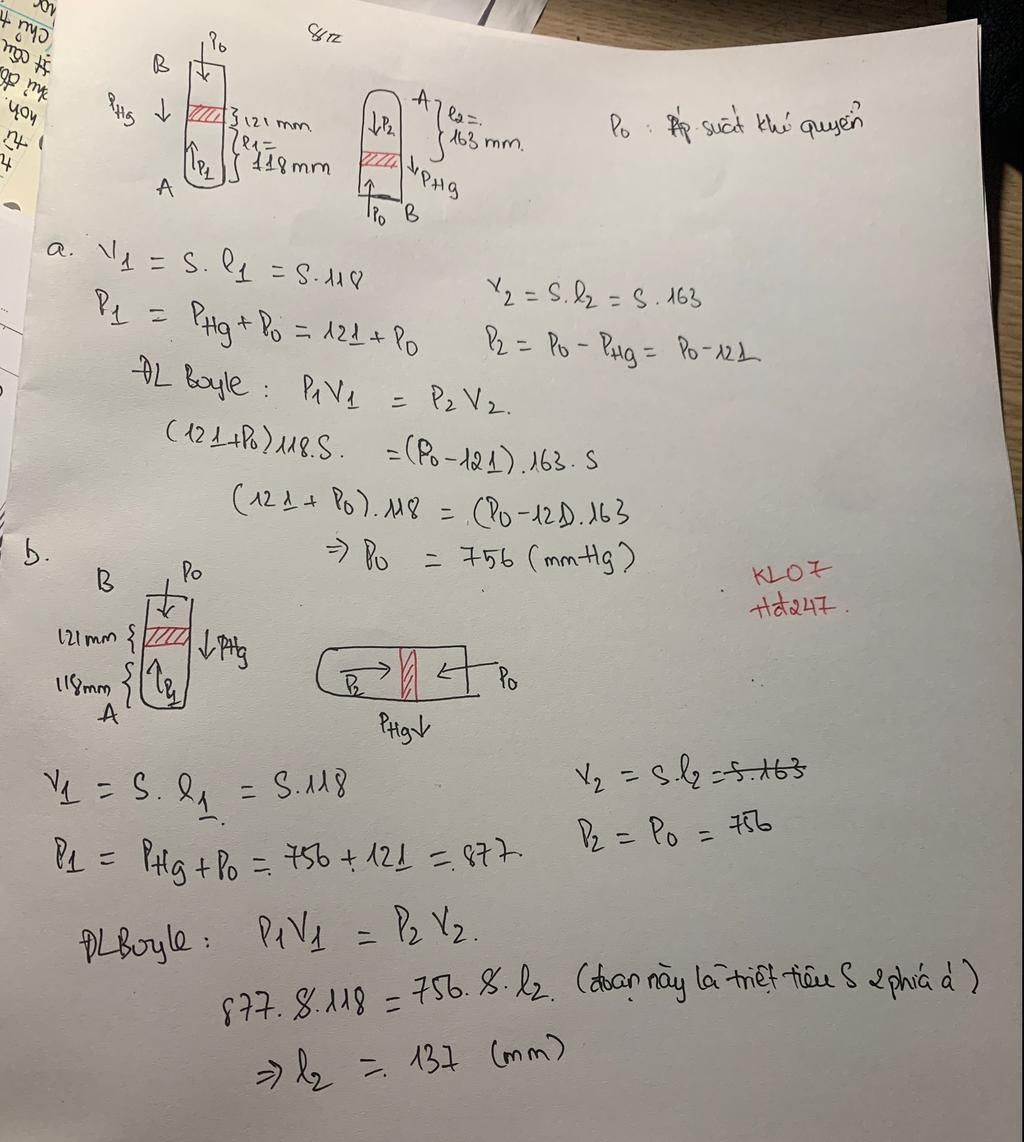 8/12
P₀
B
P_Hg
}121 mm
l₁ =
118mm
P₁
A
A
l₂ =
163 mm.
P₂
P_Hg
P₀ B
P₀ : Áp suất khí quyển
a. V₁ = S. l₁ = S.118
V₂ = S.l₂ = S. 163
P₁ = P_Hg + P₀ = 121 + P₀
P₂ = P₀ - P_Hg = P₀ - 121
ĐL Boyle : P₁V₁ = P₂V₂.
(121+P₀)118.S. = (P₀-121).163.S
(121 + P₀).118 = (P₀-121).163
⇒ P₀ = 756 (mmHg)
KL07
Hd247.
b.
B P₀
121mm
P_Hg
118mm
P₁
A
P₂
P₀
P_Hg
V₁ = S. l₁ = S.118
V₂ = S.l₂ = S.163
P₁ = P_Hg + P₀ = 756 + 121 = 877.
P₂ = P₀ = 756
ĐLBoyle : P₁V₁ = P₂V₂.
877. S.118 = 756. S. l₂. (đoạn này là triệt tiêu S 2 phía á)
⇒ l₂ = 137 (mm)